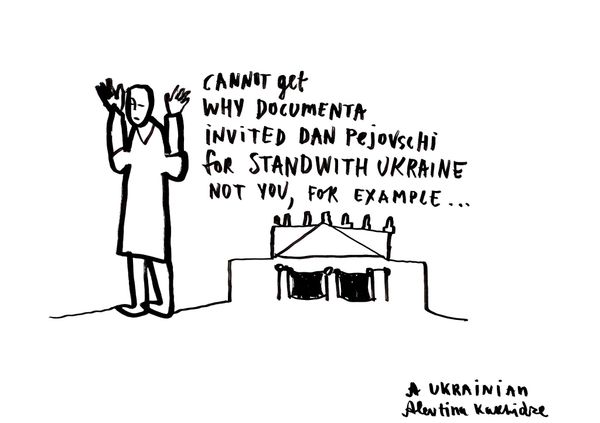 CANNOT get
WHY DOCUMENTA
INVITED DAN PEJOVSCHI
for STANDWITH UKRAINE
NOT YOU, FOR EXAMPLE...
A UKRAINIAN
Alevtina Kakhidze